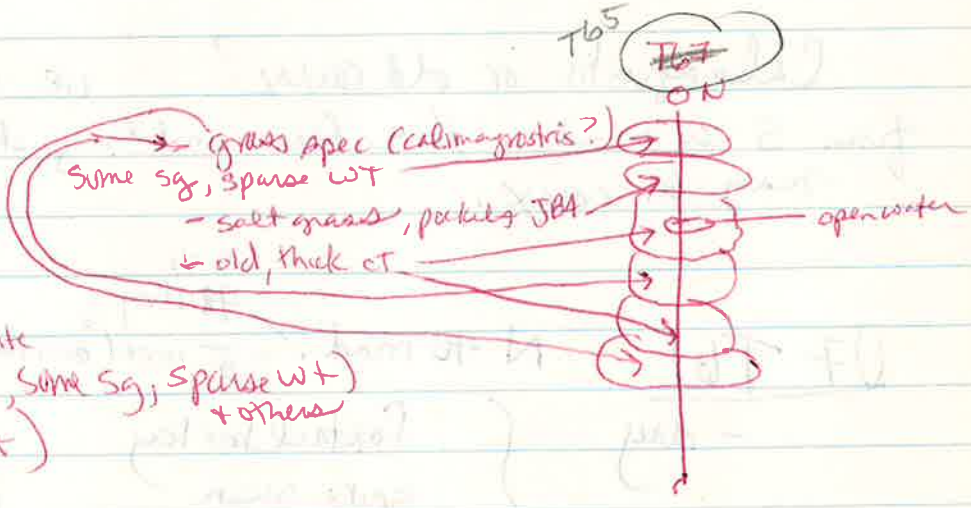 T65
T67
0 N
- grass spec (calimagrostris?)
Some sg, sparse WT
- salt grass, JBA
open water
- old, thick CT
, some sg, sparse wt)
+ others